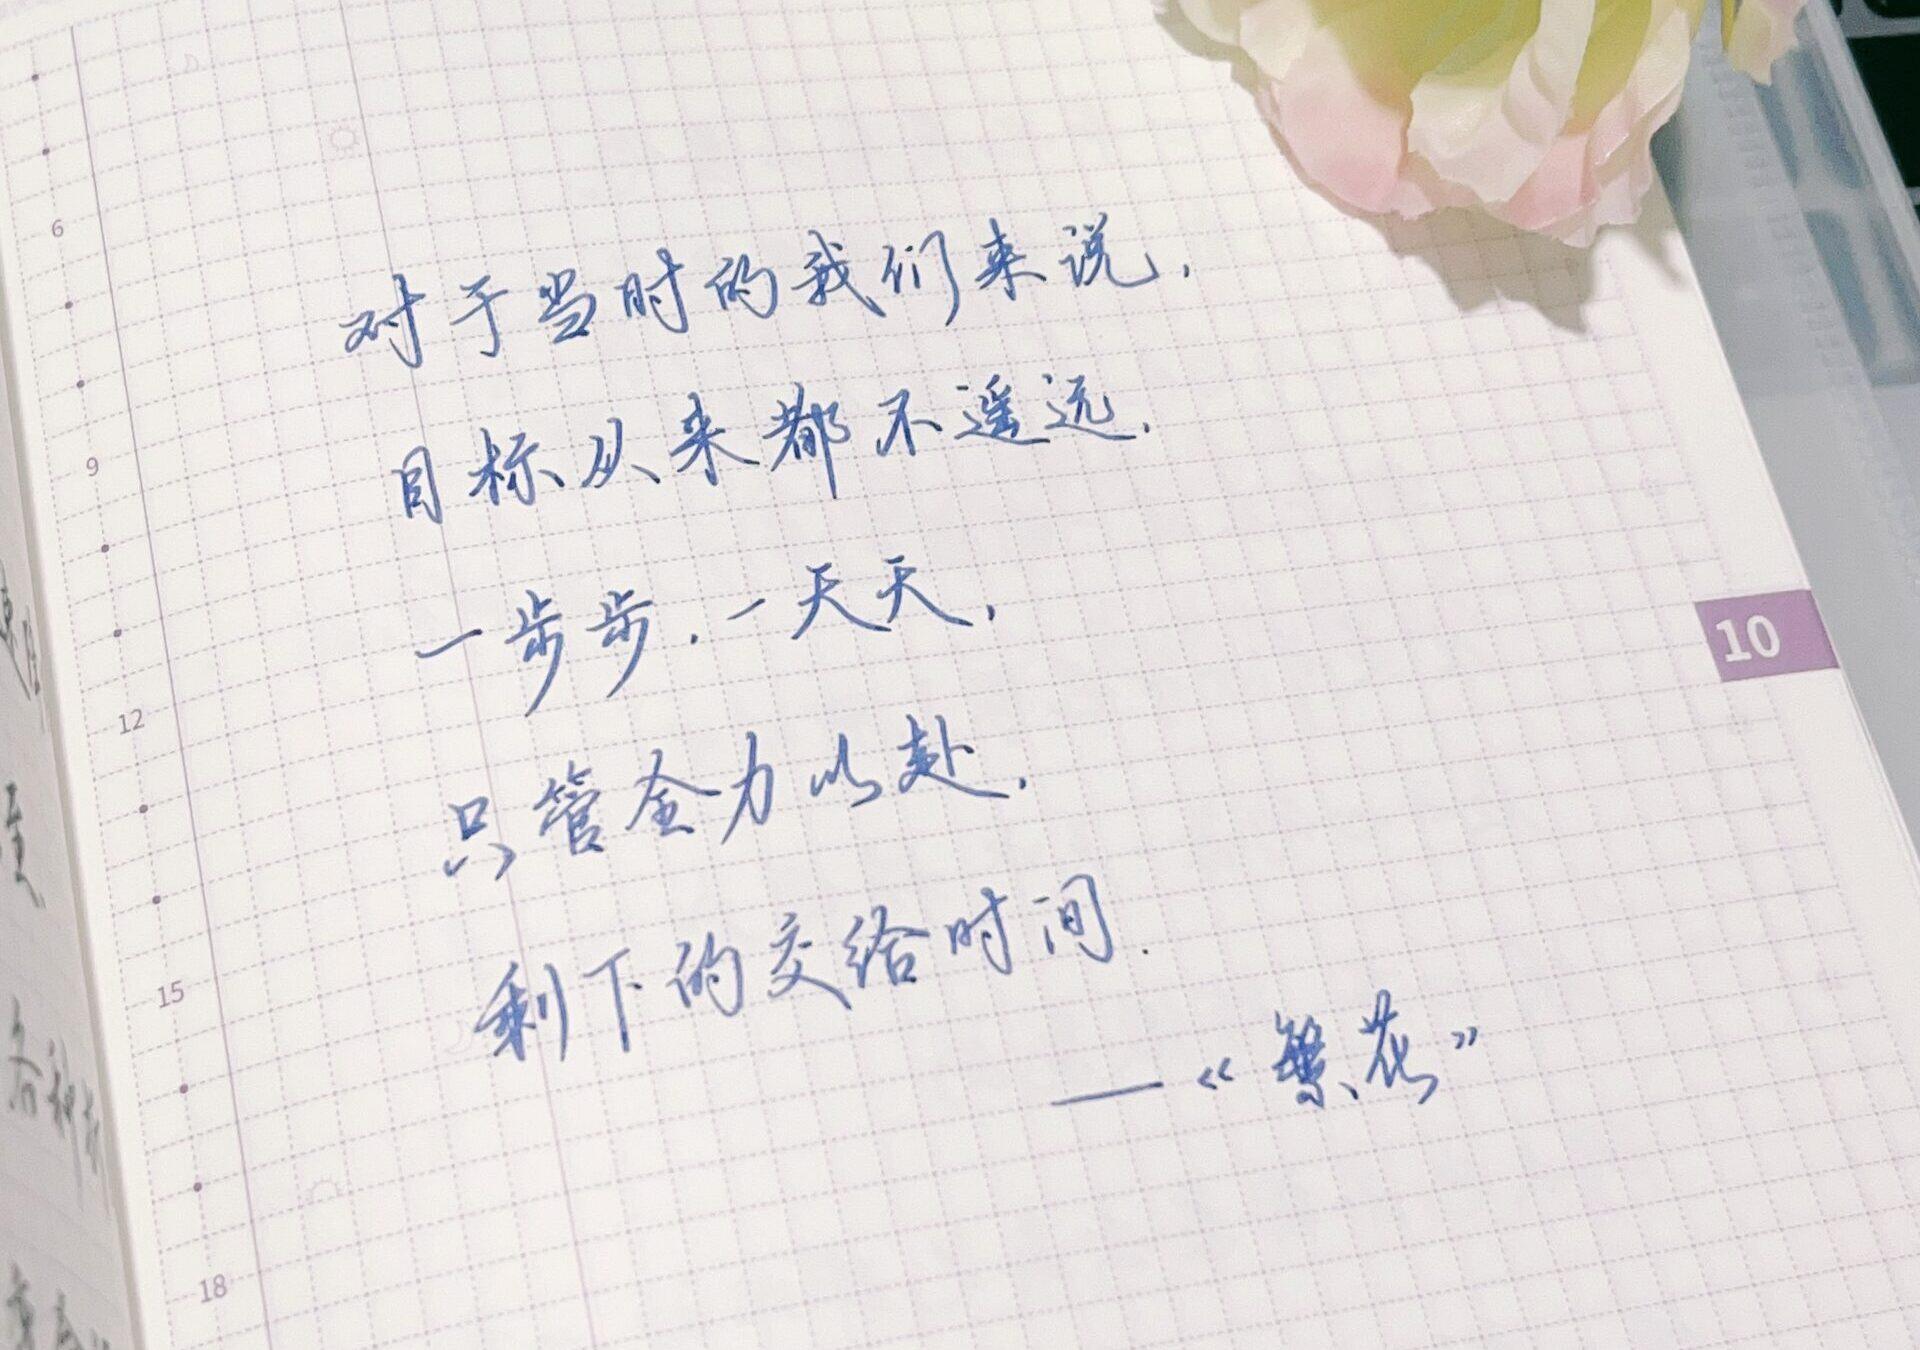 对于当时的我们来说，
目标从来都不遥远.
一步步.一天天，
只管全力以赴.
剩下的交给时间.
——《繁花》
6
9
12
15
18
10